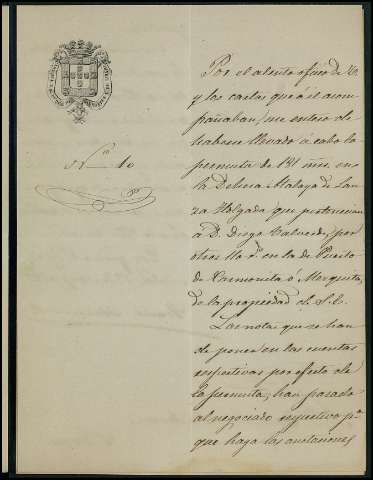 Nº 10
Por el atento oficio de V.
y las cartas que á el acom-
pañaban, me entero de
haberse llevado á cabo la
permuta de 181 mrs. en
la Dehesa Atalaya de Lan-
za Holgada, que pertenecian
á D. Diego Valverde, por
otros 110 rs en la de Puerto
de Carmonita ó Mezquita,
de la propiedad de S.E.
Las notas que se han
de poner en las cuentas
respectivas por efecto de
la permuta, han pasado
al negociado respectivo pª
que haga las anotaciones